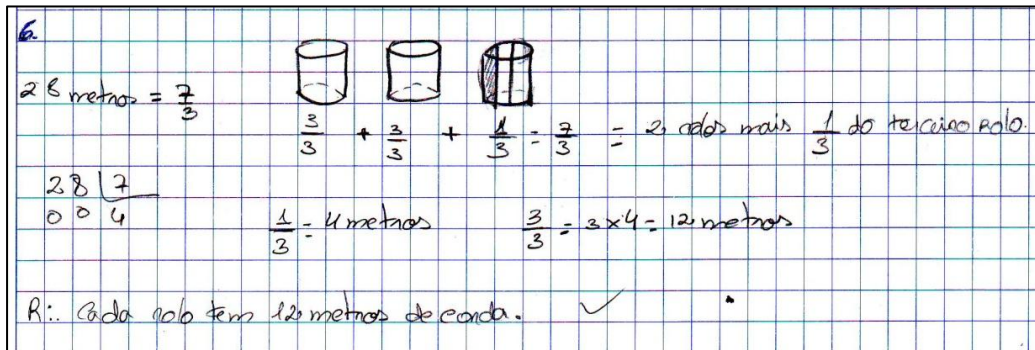 6.
28 metros = 7/3
3/3 + 3/3 + 1/3 = 7/3 = 2 rolos mais 1/3 do terceiro rolo.
28 | 7
00 4
1/3 = 4 metros 3/3 = 3 x 4 = 12 metros
R:. Cada rolo tem 12 metros de corda. ✓